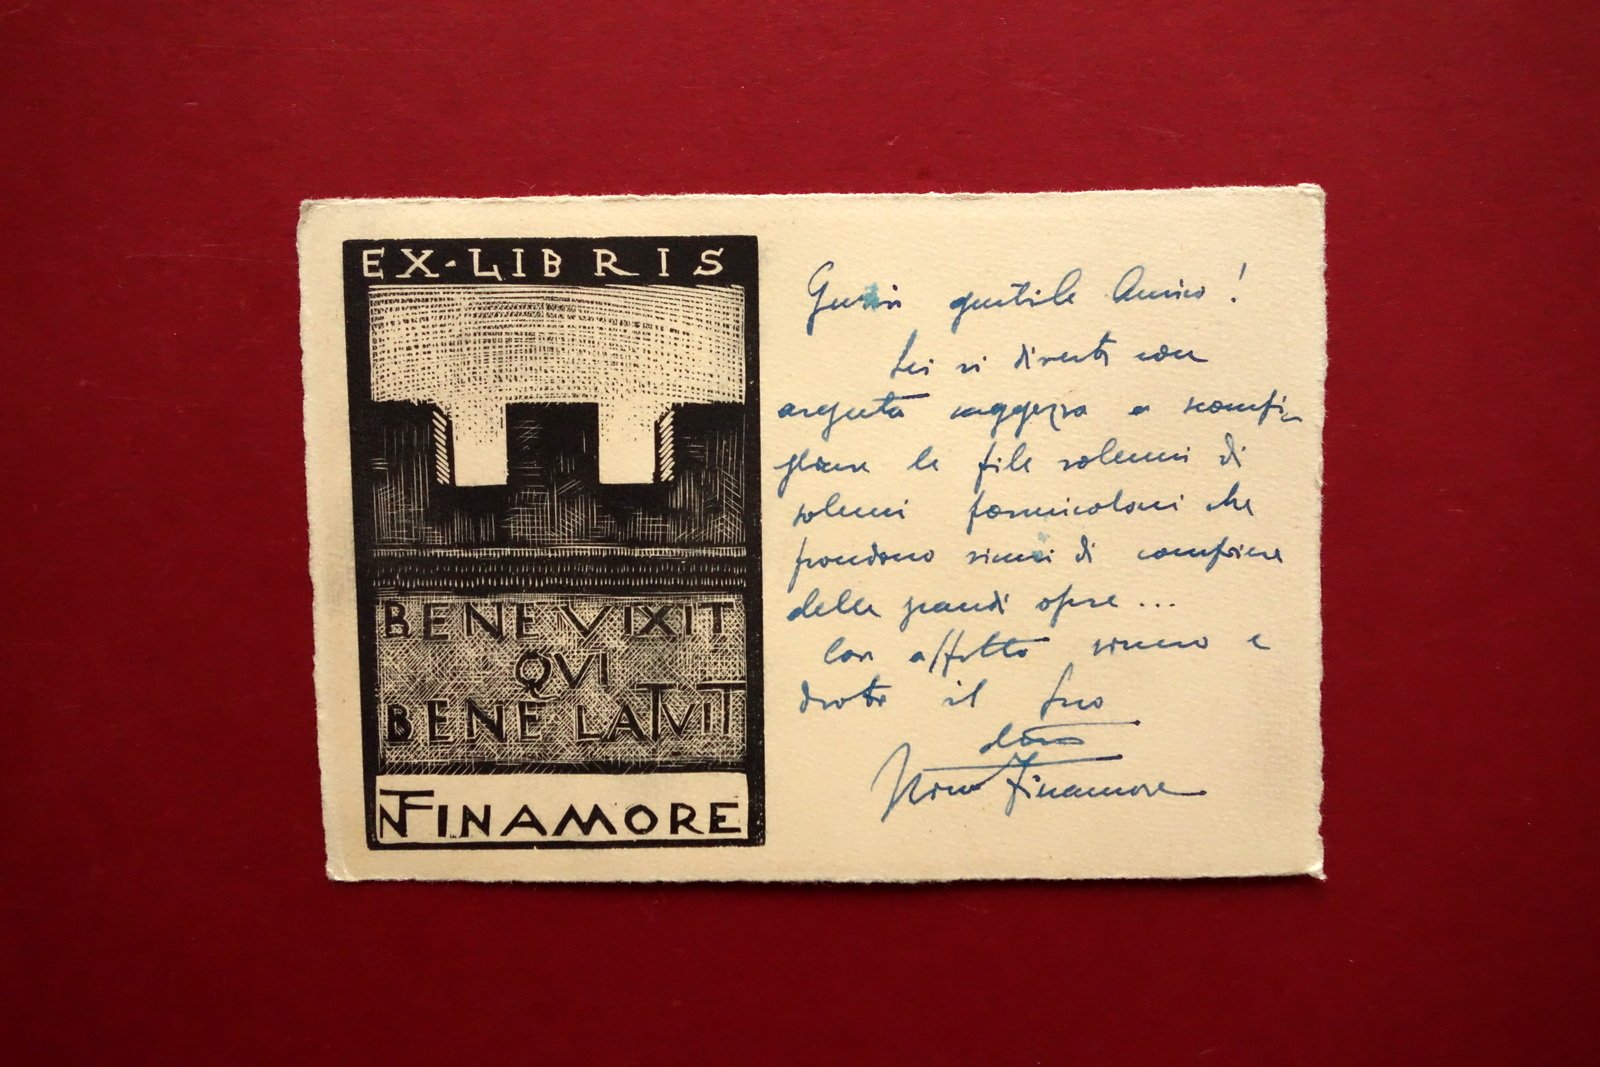 EX-LIBRIS
BENE VIXIT
QVI
BENE LATVIT
NFINAMORE
gentile Amico!
Lei si diverte con
arguta saggezza a scompi-
gliare le file solenni di
solenni formicoloni che
prendono sinossi di
delle grandi opere...
Con affetto sincero e
devoto il Suo
Nino Finamore